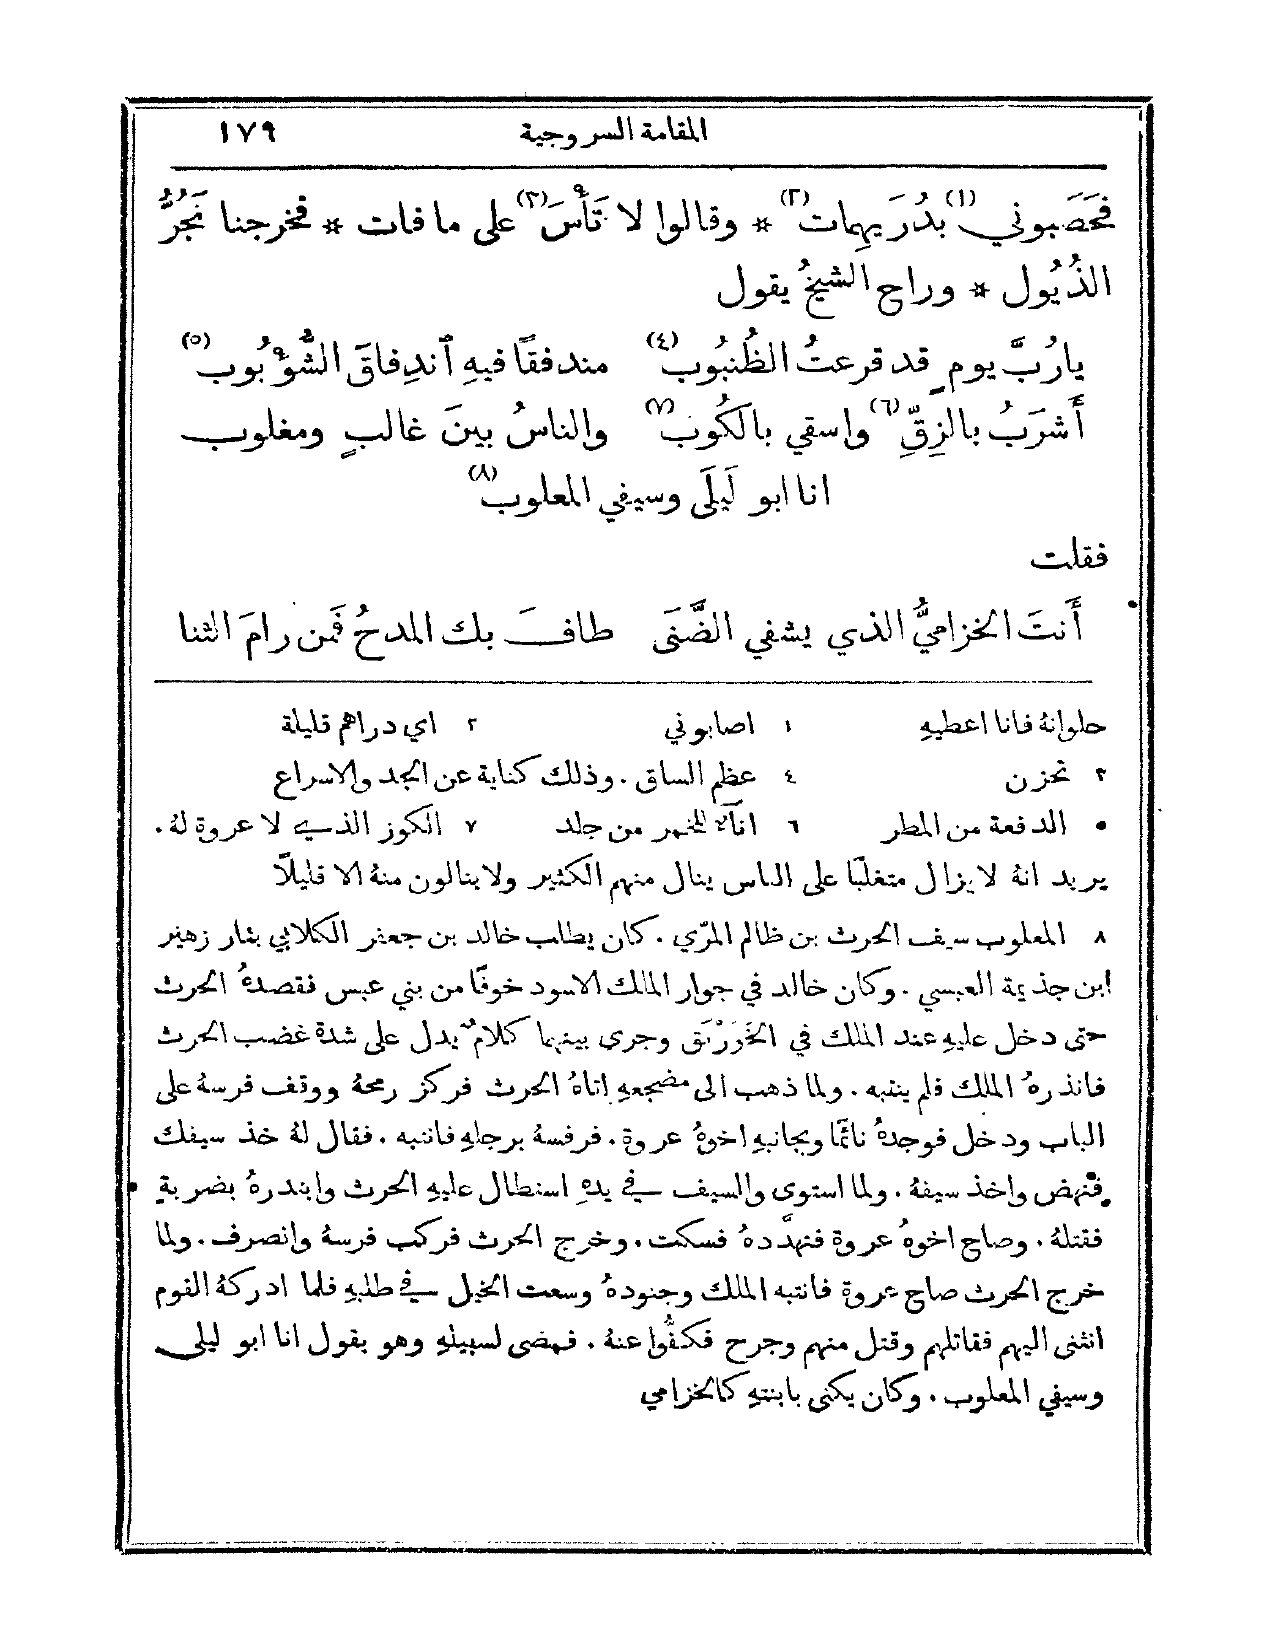 المقامة السروجية ١٧٩
فحَصَبوني(١) بدُرَيهمات(٢) * وقالوا لا تَأْسَ(٣) على ما فات * فخرجنا نَجُرُّ
الذُيُول * وراح الشيخُ يقول
يارُبَّ يومٍ قد قرعتُ الظُنبُوب(٤) مندفقًا فيهِ ٱندِفاقَ الشُّؤْبُوب(٥)
أَشرَبُ بالزِقِّ(٦) واسقي بالكُوب(٧) والناسُ بينَ غالبٍ ومغلوب
انا ابو لَيلَى وسيفي المعلوب(٨)
فقلت
أَنتَ الخزاميُّ الذي يشفي الضَّنَى طافَ بك المدحُ فمَن رامَ الثنا
حلوانهُ فانا اعطيهِ ١ اصابوني ٢ اي دراهم قليلة
٣ تحزن ٤ عظم الساق. وذلك كناية عن الجد والاسراع
٥ الدفعة من المطر ٦ انآء للخمر من جلد ٧ الكوز الذي لا عروة لهُ.
يريد انهُ لا يزال متغلبًا على الناس ينال منهم الكثير ولا ينالون منهُ الا قليلًا
٨ المعلوب سيف الحرث بن ظالم المرّي. كان يطلب خالد بن جعفر الكلابي بثار زهير
ابن جذيمة العبسي. وكان خالد في جوار الملك الاسود خوفًا من بني عبس فقصدهُ الحرث
حتى دخل عليهِ عند الملك في الخَوَرْنَق وجرى بينهما كلامٌ يدل على شدة غضب الحرث
فانذرهُ الملك فلم ينتبه. ولما ذهب الى مضجعهِ اتاهُ الحرث فركز رمحهُ ووقف فرسهُ على
الباب ودخل فوجدهُ نائمًا وبجانبهِ اخوهُ عروة. فرفسهُ برجلهِ فانتبه. فقال لهُ خذ سيفك
فنهض واخذ سيفهُ. ولما استوى والسيف في يدهِ استطال عليهِ الحرث وابتدرهُ بضربةٍ
فقتلهُ. وصاح اخوهُ عروة فتهدَّدهُ فسكت. وخرج الحرث فركب فرسهُ وانصرف. ولما
خرج الحرث صاح عروة فانتبه الملك وجنودهُ وسعت الخيل في طلبهِ فلما ادركهُ القوم
انثنى اليهم فقاتلهم وقتل منهم وجرح فكفُّوا عنهُ. فمضى لسبيلهِ وهو يقول انا ابو ليلى
وسيفي المعلوب. وكان يكنى بابنتهِ كالخزامي